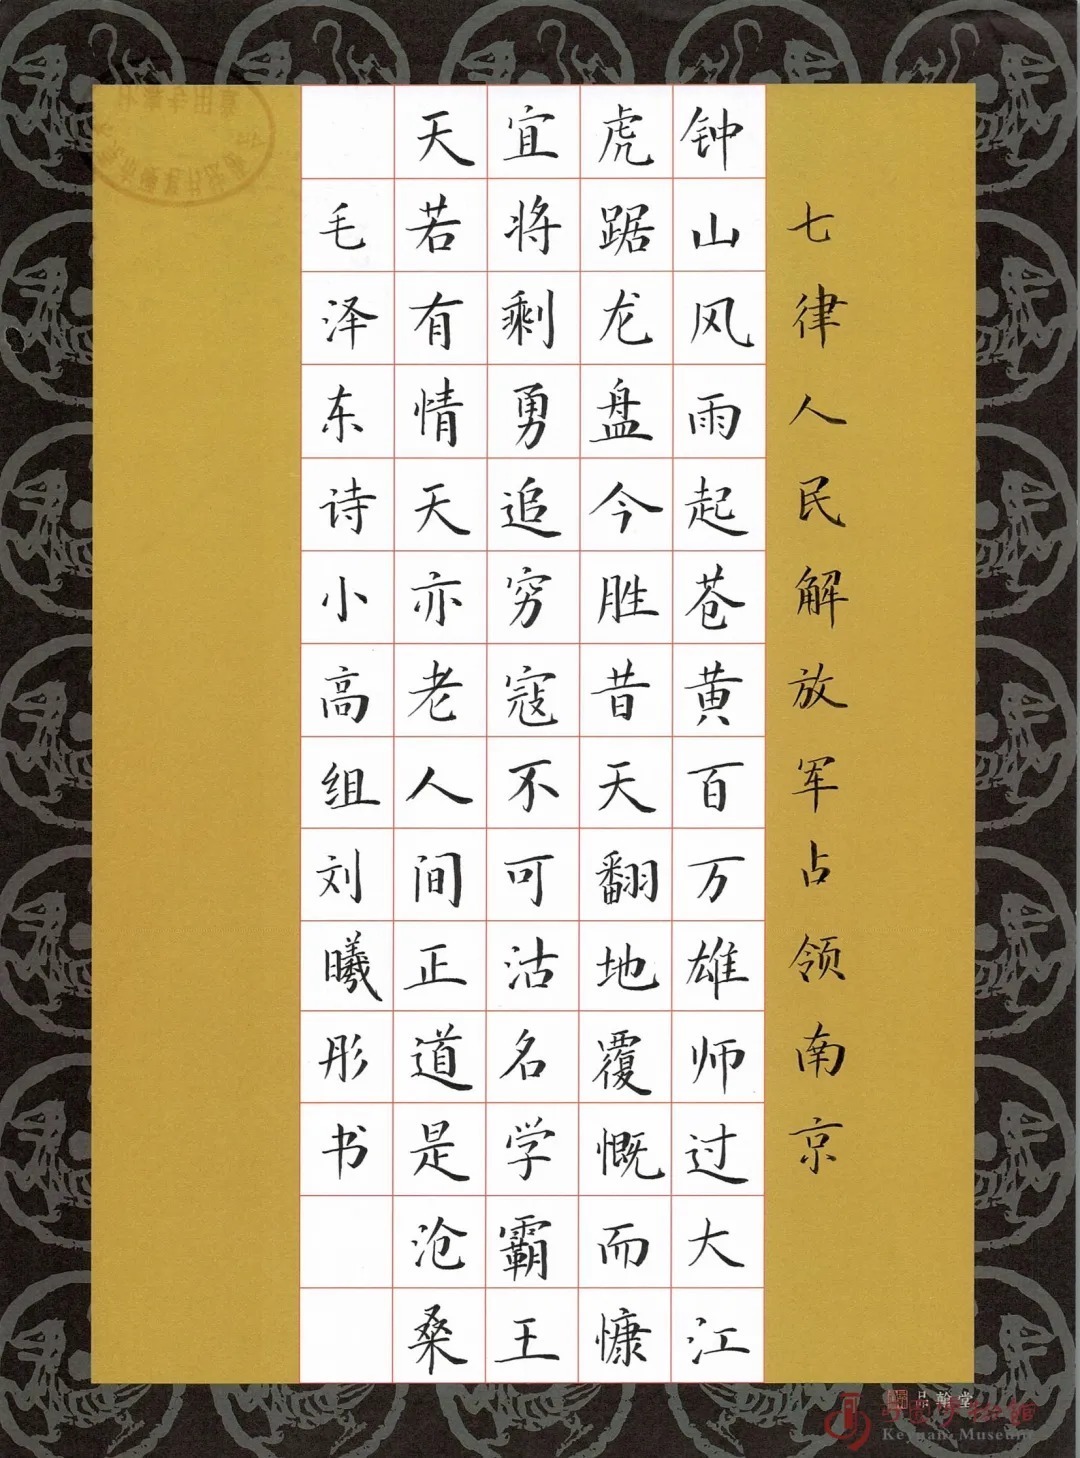 七律人民解放军占领南京
钟山风雨起苍黄百万雄师过大江
虎踞龙盘今胜昔天翻地覆慨而慷
宜将剩勇追穷寇不可沽名学霸王
天若有情天亦老人间正道是沧桑
毛泽东诗小高组刘曦彤书
品翰堂
Keyuan Museum